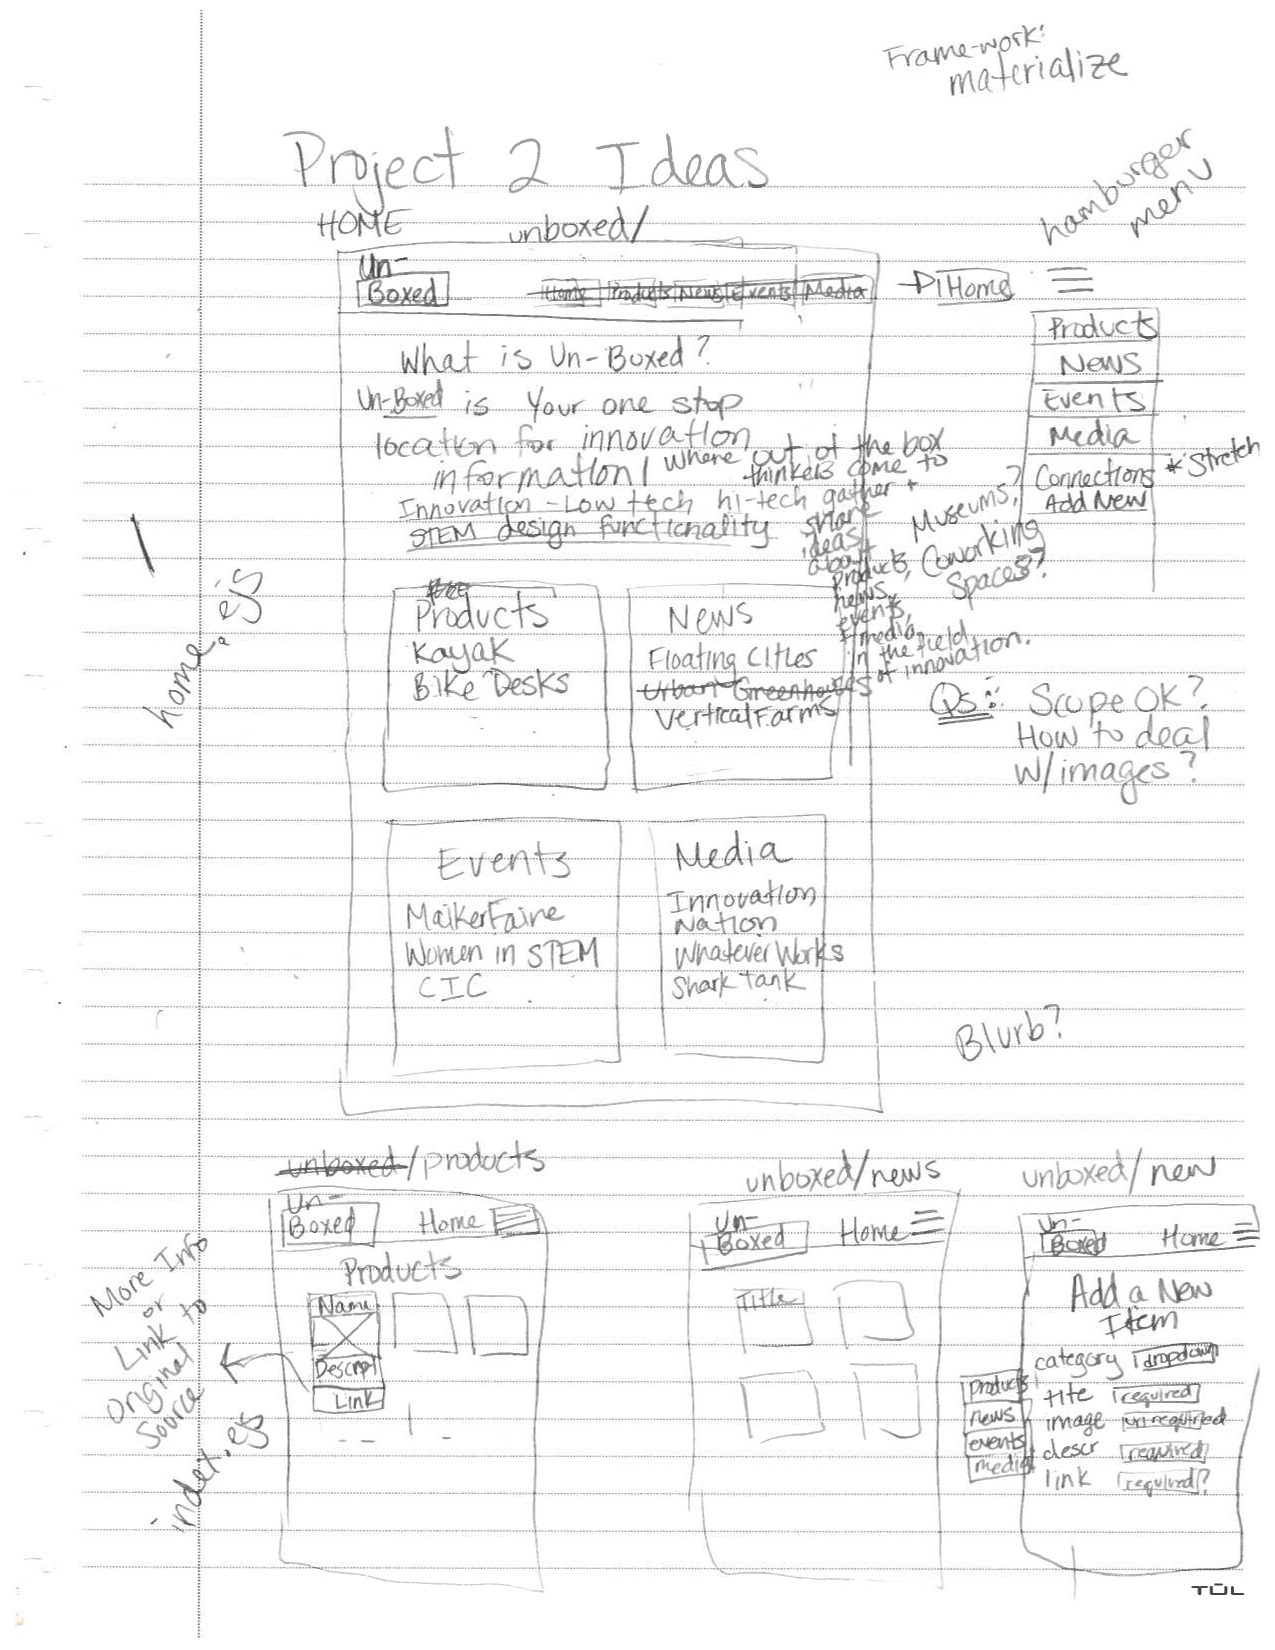 Frame-work:
materialize
Project 2 Ideas
HOME unboxed/
hamburger
menu
Un-
Boxed
Home Products News Events Media
Home
Products
News
Events
Media
Connections * Stretch
Add New
What is Un-Boxed?
Un-Boxed is your one stop
location for innovation
information! where out of the box
thinkers come to
gather +
share
ideas
about
products,
news,
events,
+ media
in the field
of innovation.
Innovation - Low tech hi-tech
STEM design functionality
Museums?
Coworking
Spaces?
home.ejs
Products
Kayak
Bike Desks
News
Floating Cities
Urban Greenhouses
Vertical Farms
Qs: Scope OK?
How to deal
w/images?
Events
MaikerFaine
Women in STEM
CIC
Media
Innovation
Nation
Whatever Works
Shark Tank
Blurb?
unboxed/products
Un-
Boxed Home
Products
Name
Descript
Link
More Info
or
Link to
Original
Source
index.ejs
unboxed/news
Un-
Boxed Home
Title
unboxed/new
Un-
Boxed Home
Add a New
Item
category dropdown
products
news
events
media
title required
image unrequired
descr required
link required?
TŪL